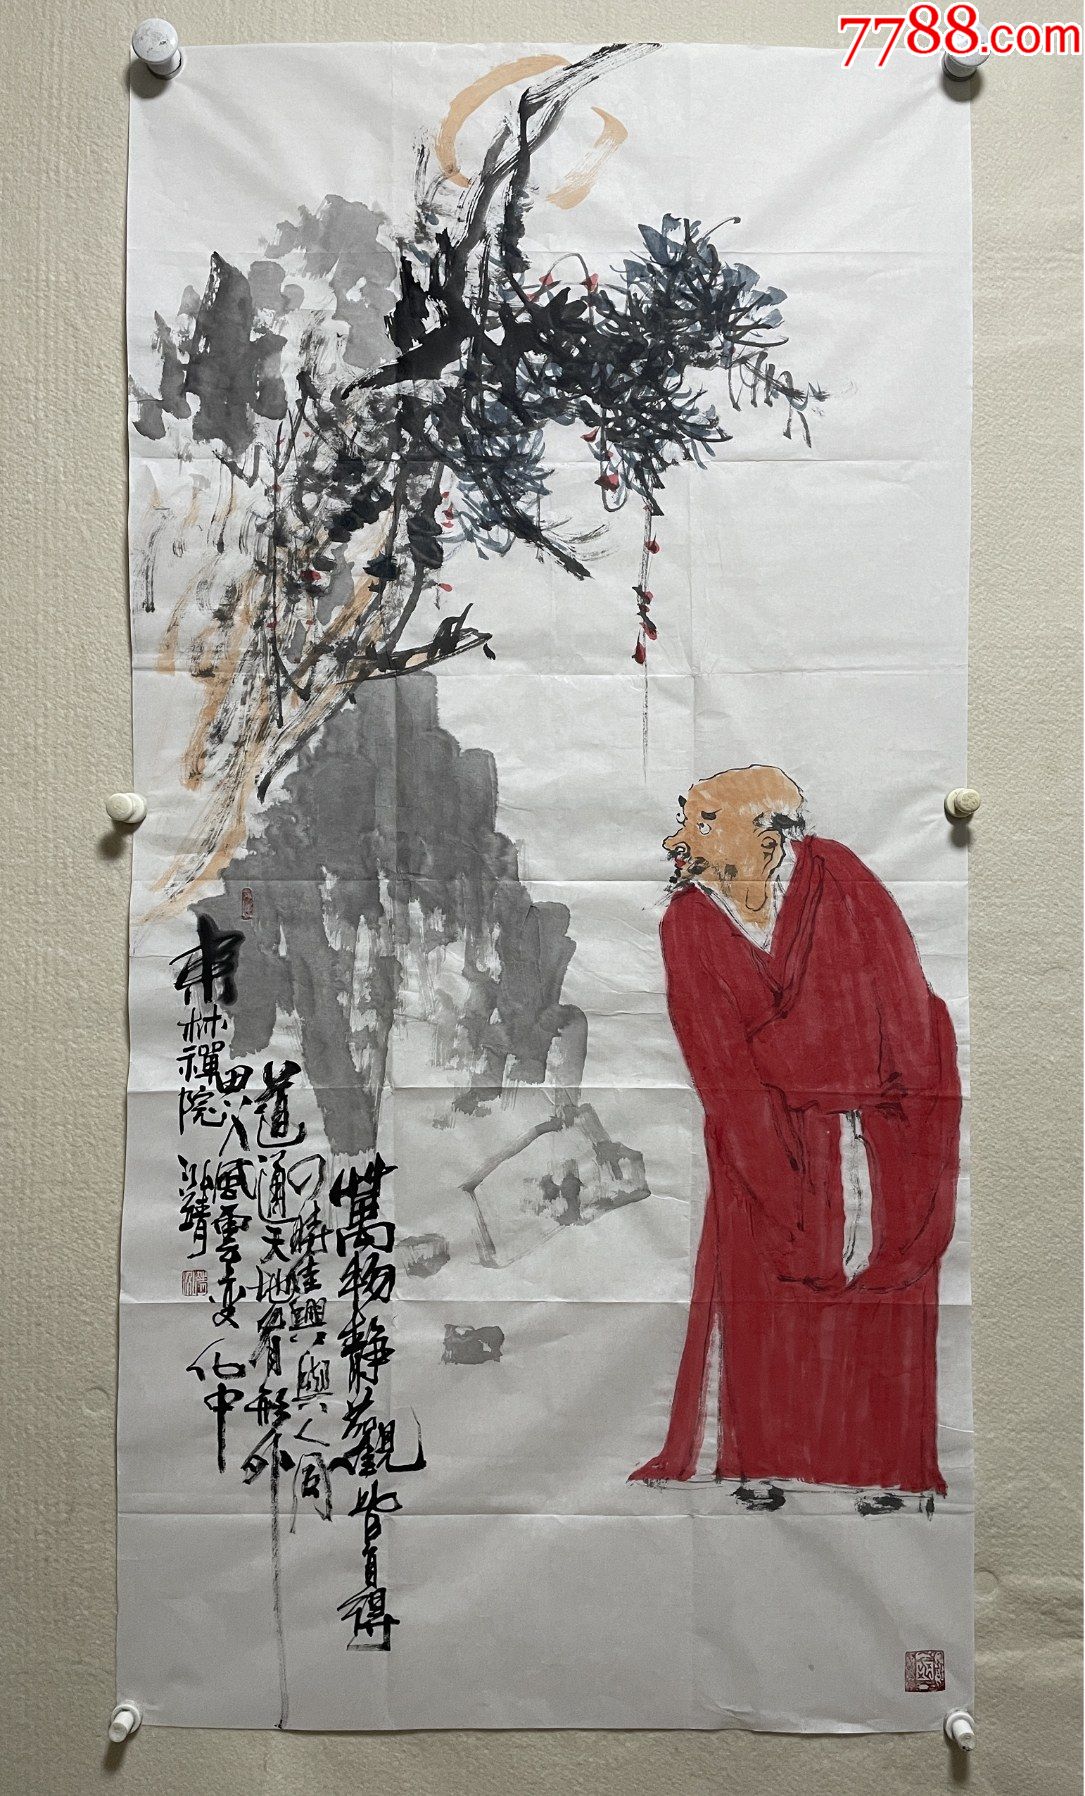 7788.com
萬物靜觀皆自得
四時佳興與人同
道通天地有形外
思入風雲變化中
東林禪院